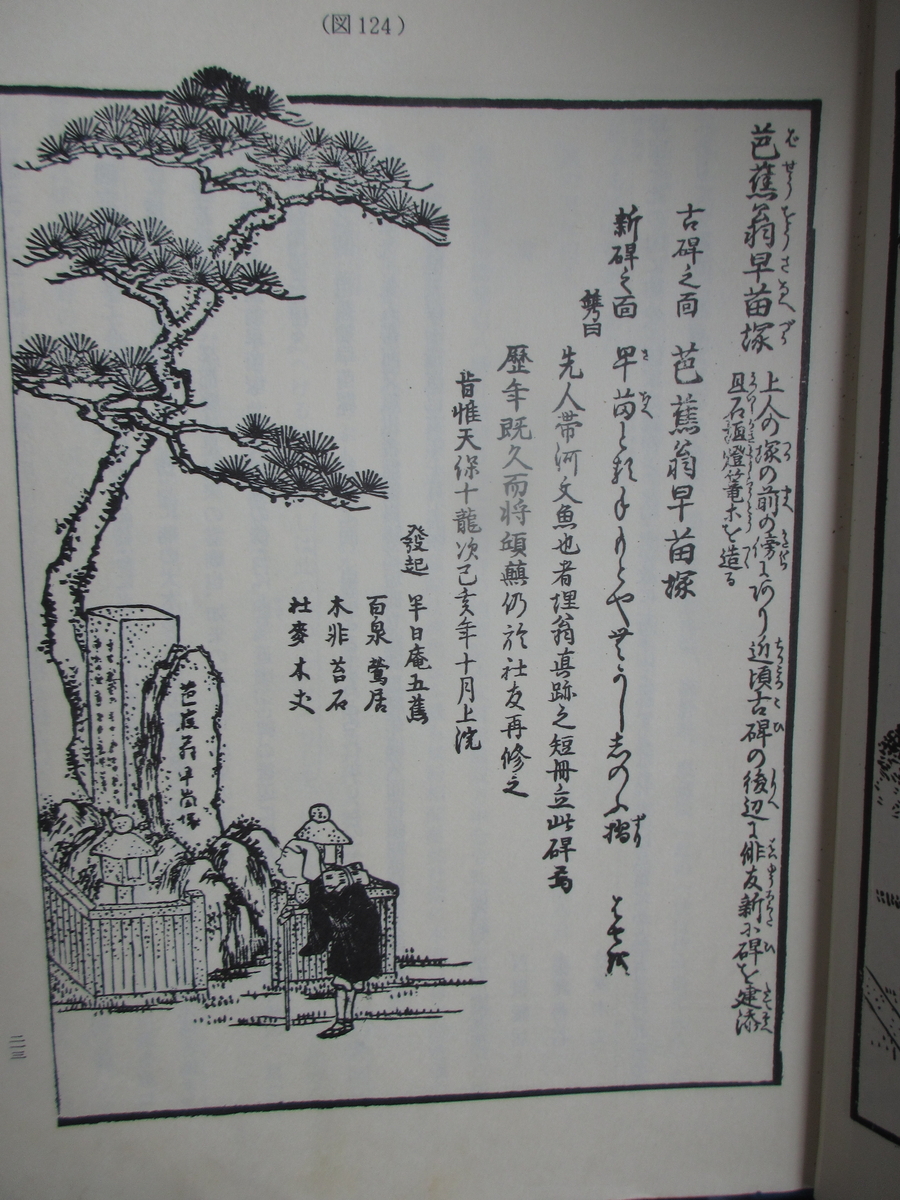 (図124)
芭蕉翁早苗塚
上人の塚の前の傍にあり近頃古碑の後辺に俳友新に碑を建添
且石垣燈籠等を造る
古碑之面 芭蕉翁早苗塚
新碑之面 早苗とる手もとやむかしもしのふ摺 はせを
雙曰
先人帯河文魚也者埋翁真跡之短冊立此碑焉
歴年既久而将頽蘇仍於社友再修之
旹惟天保十龍次己亥年十月上浣
發起 半日庵五蕉
百泉鶯居
木非苔石
社麥木丈
芭蕉翁早苗塚
二三